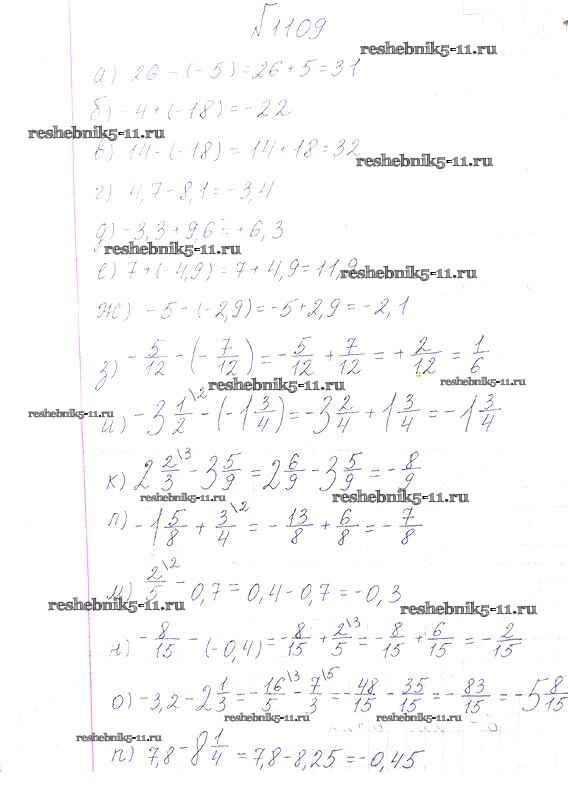 №1109
reshebnik5-11.ru
а) 26 - (-5) = 26 + 5 = 31
б) -4 + (-18) = -22
reshebnik5-11.ru
в) 14 - (-18) = 14 + 18 = 32
reshebnik5-11.ru
г) 4,7 - 8,1 = -3,4
д) -3,3 + 9,6 = +6,3
reshebnik5-11.ru
е) 7 + (-4,9) = 7 + 4,9 = 11,9
reshebnik5-11.ru
ж) -5 - (-2,9) = -5 + 2,9 = -2,1
з) -5/12 - (-7/12) = -5/12 + 7/12 = +2/12 = 1/6
reshebnik5-11.ru
reshebnik5-11.ru
reshebnik5-11.ru
и) -3 1/2\2 - (-1 3/4) = -3 2/4 + 1 3/4 = -1 3/4
к) 2 2/3\3 - 3 5/9 = 2 6/9 - 3 5/9 = -8/9
reshebnik5-11.ru
reshebnik5-11.ru
л) -1 5/8 + 3/4\2 = -13/8 + 6/8 = -7/8
м) 2/5\2 - 0,7 = 0,4 - 0,7 = -0,3
reshebnik5-11.ru
reshebnik5-11.ru
н) -8/15 - (-0,4) = -8/15 + 2/5\3 = -8/15 + 6/15 = -2/15
о) -3,2 - 2 1/3 = -16/5\3 - 7/3\5 = -48/15 - 35/15 = -83/15 = -5 8/15
reshebnik5-11.ru
reshebnik5-11.ru
reshebnik5-11.ru
п) 7,8 - 8 1/4 = 7,8 - 8,25 = -0,45